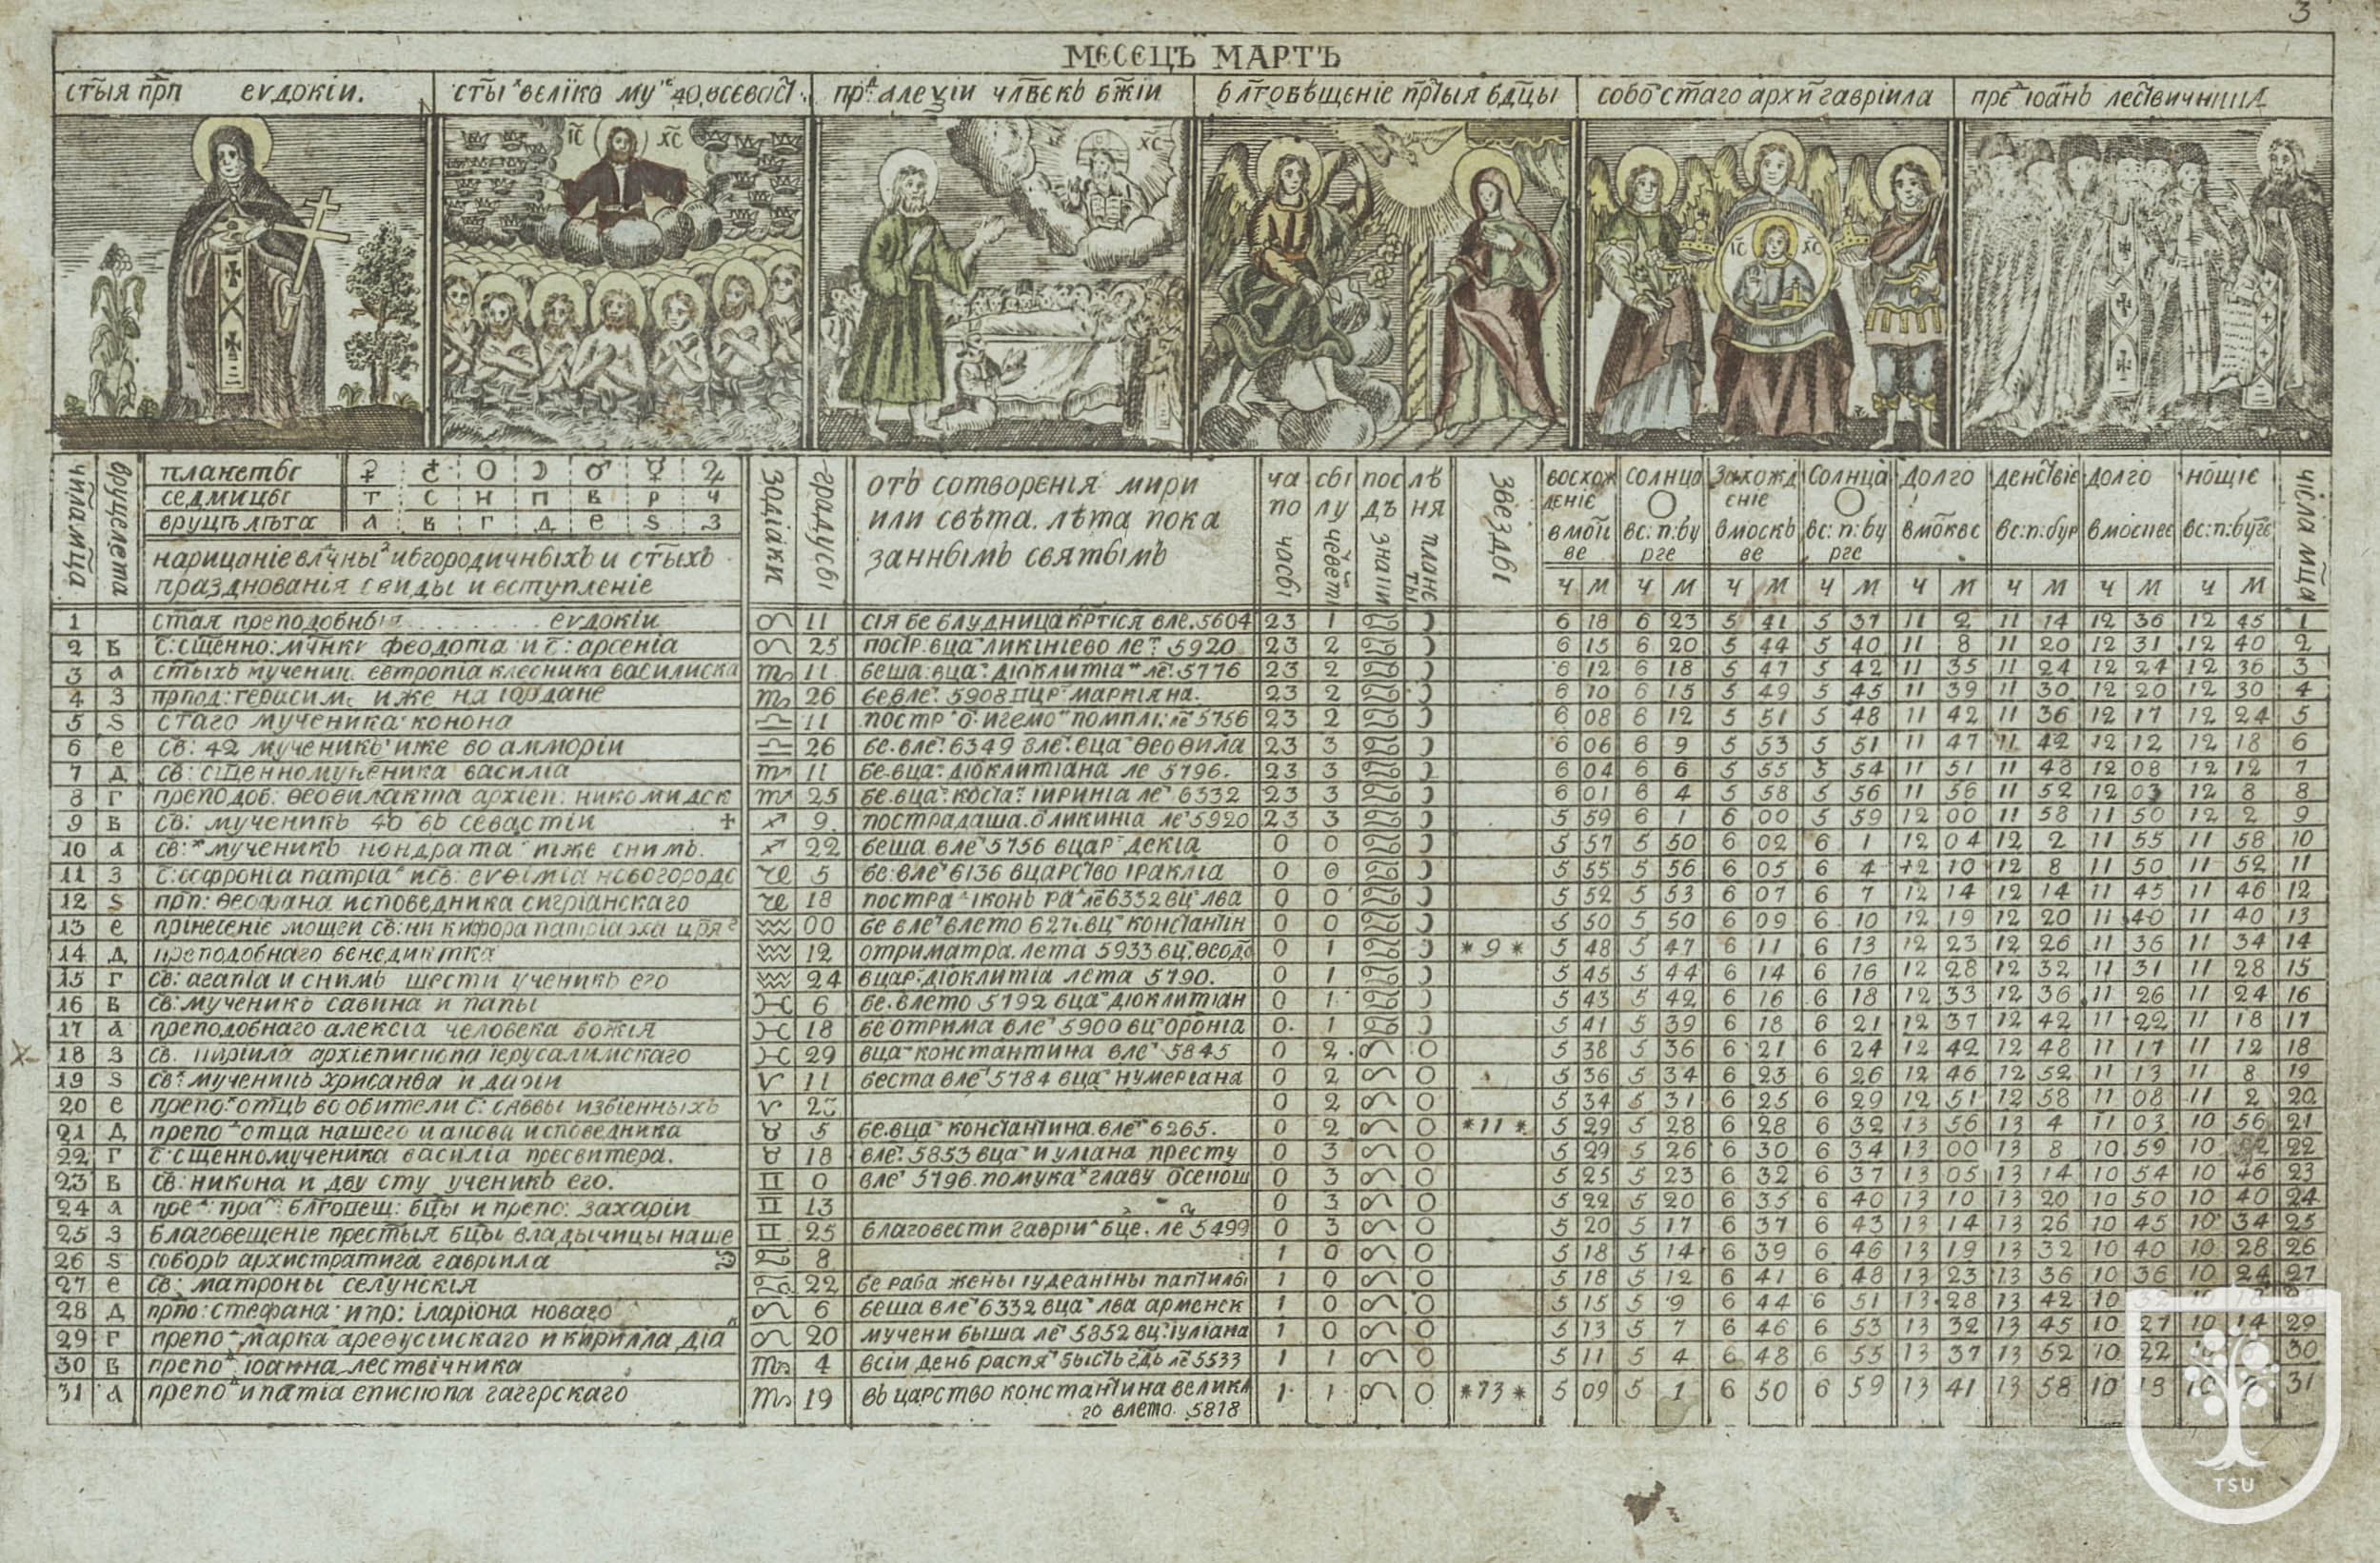 3
МЕСЕЦЪ МАРТЪ
СТ҃ЫЯ ПР҃П ЕѴДОКІИ.
СТ҃Ы ВЕЛІКО МУ 40, ВСЕВАСТ
ПР АЛЕѮІИ ЧЛ҃ВЕКЪ БЖ҃ІИ
БЛГ҃ОВѢЩЕНІЕ ПРТ҃ЫЯ БДЦ҃Ы
СОБО СТ҃АГО АРХИ ГАВРІИЛА
ПРЕ ІОАНЪ ЛЕСТВИЧНИ
ІС҃ ХС҃
ХС҃
ІС҃ ХС҃
ЧИСЛА МЦ҃А
ВРУЦЕЛЕТА
ПЛАНЕТЫ ♀ ♄ ☉ ☽ ♂ ☿ ♃
СЕДМИЦЫ Т С Н П В Р Ч
ВРУЦѢ ЛѢТА А В Г Д Е Ѕ З
НАРИЦАНІЕ ВЛЧ҃НЫ И БГОРОДИЧНЫХЪ И СТ҃ЫХЪ
ПРАЗДНОВАНІЯ СВИДЫ И ВСТУПЛЕНІЕ
ЗОДІАКИ
ГРАДУСЫ
ОТЬ СОТВОРЕНІЯ МИРИ
ИЛИ СВѢТА. ЛѢТА ПОКА
ЗАННЫМЬ СВЯТЫМЬ
ЧА ПО ЧАСЫ
СВІ ЛУ ЧЕВЕТІ
ПОС ДЪ ЗНАІИ
ЛѢ НЯ ПЛАНЕ ТЫ
ЗВЕЗДЫ
ВОСХОЖ ДЕНІЕ В МОП ВЕ
СОЛНЦО ВС: П: БУ РГЕ
ЗАХОЖД ЕНІЕ В МОСКЬ ВЕ
СОЛНЦА ВС: П: БУ РГЕ
ДОЛГО В МОКВЕ
ДЕНСТВІЕ ВС: П: БУР
ДОЛГО В МОСПВЕ
НОЩІЕ ВС: П: БУГЕ
ЧІСЛА МЦ҃А
Ч М Ч М Ч М Ч М Ч М Ч М Ч М Ч М
1 СТАЯ ПРЕПОДОБНЫЯ ЕѴДОКІИ ♌ 11 СІЯ БЕ БЛУДНИЦА КРТІСЯ ВЛЕ. 5604 23 1 ♋ ☽ 6 18 6 23 5 41 5 37 11 2 11 14 12 36 12 45 1
2 В С: СЩЕННО: МЧ҃НКУ ФЕОДОТА И С: АРСЕНІА ♌ 25 ПОСТР. ВЦА ЛИКІНІЕВО ЛЕ 5920 23 2 ♋ ☽ 6 15 6 20 5 44 5 40 11 8 11 20 12 31 12 40 2
3 А СТЫХЪ МУЧЕНИК. ЕВТРОПІА КЛЕСНИКА ВАСИЛИСКА ♍ 11 БЕША ВЦА ДІОКЛИТІА ЛЕ 5776 23 2 ♋ ☽ 6 12 6 18 5 47 5 42 11 35 11 24 12 24 12 36 3
4 З ПРПОД: ГЕРАСИМ ИЖЕ НА ІОРДАНЕ ♍ 26 БЕ ВЛЕ 5908 ПЦР МАРКІЯНА. 23 2 ♋ ☽ 6 10 6 15 5 49 5 45 11 39 11 30 12 20 12 30 4
5 Ѕ СТАГО МУЧЕНИКА КОНОНА ♎ 11 ПОСТР О ИГЕМО ПОМПЛІ: ЛЕ 5756 23 2 ♋ ☽ 6 08 6 12 5 51 5 48 11 42 11 36 12 17 12 24 5
6 Е СВ: 42 МУЧЕНИКЬ ИЖЕ ВО АММОРІИ ♎ 26 БЕ. ВЛЕ 6349 ВЛЕ ВЦА ѲЕОѲИЛА 23 3 ♋ ☽ 6 06 6 9 5 53 5 51 11 47 11 42 12 12 12 18 6
7 Д СВ: СЩЕННОМУЧЕНИКА ВАСИЛІА ♏ 11 БЕ. ВЦА ДІОКЛИТІАНА ЛЕ 5796. 23 3 ♋ ☽ 6 04 6 6 5 55 5 54 11 51 11 48 12 08 12 12 7
8 Г ПРЕПОДОБ: ѲЕОѲИЛАКТА АРХІЕП: НИКОМИДСК ♏ 25 БЕ. ВЦА КОСТА ІИРИНІА ЛЕ 6332 23 3 ♋ ☽ 6 01 6 4 5 58 5 56 11 56 11 52 12 03 12 8 8
9 В СВ: МУЧЕНИКЬ 40 ВО СЕВАСТІИ + ♐ 9 ПОСТРАДАША. В ЛИКИНІА ЛЕ 5920 23 3 ♋ ☽ 5 59 6 1 6 00 5 59 12 00 11 58 11 50 12 2 9
10 А СВ: МУЧЕНИКЬ КОНДРАТА ИЖЕ СНИМЬ. ♐ 22 БЕША ВЛЕ 5756 ВЦАР ДЕКІА 0 0 ♋ ☽ 5 57 5 50 6 02 6 1 12 04 12 2 11 55 11 58 10
11 З С: СОФРОНІА ПАТРІА ИСВ: ЕѴѲІМІА НОВОГОРОДС ♑ 5 БЕ: ВЛЕ 6136 ВЦАРСТВО ІРАКЛІА 0 0 ♋ ☽ 5 55 5 56 6 05 6 4 12 10 12 8 11 50 11 52 11
12 Ѕ ПРП: ѲЕОФАНА ИСПОВЕДНИКА СИГРІАНСКАГО ♑ 18 ПОСТРА ІКОНЬ РА ЛЕ 6332 ВЦ ЛВА 0 0 ♋ ☽ 5 52 5 53 6 07 6 7 12 14 12 14 11 45 11 46 12
13 Е ПРІНЕСЕНІЕ МОЩЕИ СВ: НИКИФОРА ПАТРІАРХА ЦРЯ ♒ 00 БЕ ВЛЕ ВЛЕТО ВЦ КОНСТАНТІН 0 0 ♋ ☽ 5 50 5 50 6 09 6 10 12 19 12 20 11 40 11 40 13
14 Д ПРЕПОДОБНАГО ВЕНЕДИКТКА ♒ 12 ОТРИМАТРА. ЛЕТА 5933 ВЦ. ѲЕОДО 0 1 ♋ ☽ *9* 5 48 5 47 6 11 6 13 12 23 12 26 11 36 11 34 14
15 Г СВ: АГАПІА И СНИМЬ ШЕСТИ УЧЕНИКЬ ЕГО ♒ 24 ВЦАР: ДІОКЛИТІА ЛЕТА 5790. 0 1 ♋ ☽ 5 45 5 44 6 14 6 16 12 28 12 32 11 31 11 28 15
16 В СВ: МУЧЕНИКО САВИНА И ПАПЫ ♓ 6 БЕ. ВЛЕТО 5792 ВЦА ДІОКЛИТІАН 0 1 ♋ ☽ 5 43 5 42 6 16 6 18 12 33 12 36 11 26 11 24 16
17 А ПРЕПОДОБНАГО АЛЕКСІА ЧЕЛОВЕКА БОЖІЯ ♓ 18 БЕ ОТРИМА ВЛЕ 5900 ВЦ ОРОНІА 0. 1 ♋ ☽ 5 41 5 39 6 18 6 21 12 37 12 42 11 22 11 18 17
18 З СВ. КИРІИЛА АРХІЕПИСКОПА ІЕРУСАЛИМСКАГО ♓ 29 ВЦА КОНСТАНТИНА ВЛЕ 5845 0 2 ♌ ☉ 5 38 5 36 6 21 6 24 12 42 12 48 11 17 11 12 18
19 Ѕ СВ МУЧЕНИКЬ ХРИСАНѲА И ДАРІИ ♈ 11 БЕСТА ВЛЕ 5784 ВЦА НУМЕРІАНА 0 2 ♌ ☉ 5 36 5 34 6 23 6 26 12 46 12 52 11 13 11 8 19
20 Е ПРЕПО ОТЦЬ ВО ОБИТЕЛИ С: САВВЫ ИЗБІЕННЫХЬ ♈ 0 2 ♌ ☉ 5 34 5 31 6 25 6 29 12 51 12 58 11 08 11 2 20
21 Д ПРЕПО ОТЦА НАШЕГО ИАКОВА ИСПОВЕДНИКА ♉ 5 БЕ. ВЦА КОНСТАНТИНА ВЛЕ 6265. 0 2 ♌ ☉ *11* 5 29 5 28 6 28 6 32 13 56 13 4 11 03 10 56 21
22 Г С: СЩЕННОМУЧЕНИКА ВАСИЛІА ПРЕСВИТЕРА. ♉ 18 ВЛЕ 5853 ВЦА ИУЛІАНА ПРЕСТУ 0 3 ♌ ☉ 5 29 5 26 6 30 6 34 13 00 13 8 10 59 10 22
23 В СВ: НИКОНА И ДВУ СТУ УЧЕНИКЬ ЕГО. ♊ 0 ВЛЕ 5796. ПО МУКА ГЛАВУ ОСЕПОШ 0 3 ♌ ☉ 5 25 5 23 6 32 6 37 13 05 13 14 10 54 10 46 23
24 А ПРЕ ПРА БЛГОПЕЩ: БЦ҃Ы И ПРЕПО: ЗАХАРІИ ♊ 13 0 3 ♌ ☉ 5 22 5 20 6 35 6 40 13 10 13 20 10 50 10 40 24
25 З БЛАГОВЕЩЕНІЕ ПРЕСТЫЯ БЦ҃Ы ВЛАДЫЧИЦЫ НАШЕ ♊ 25 БЛАГОВЕСТИ ГАВРІИ БЦЕ. ЛЕ 5499 0 3 ♌ ☉ 5 20 5 17 6 37 6 43 13 14 13 26 10 45 10 34 25
26 Ѕ СОБОРЬ АРХИСТРАТИГА ГАВРІИЛА ♋ 8 1 0 ♌ ☉ 5 18 5 14 6 39 6 46 13 19 13 32 10 40 10 28 26
27 Е СВ: МАТРОНЫ СЕЛУНСКІЯ ♋ 22 БЕ РАБА ЖЕНЫ ІУДЕАНІНЫ ПАПТИЛЫ 1 0 ♌ ☉ 5 18 5 12 6 41 6 48 13 23 13 36 10 36 10 24 27
28 Д ПРПО: СТЕФАНА: И ПР: ІЛАРІОНА НОВАГО ♌ 6 БЕША ВЛЕ 6332 ВЦА ЛВА АРМЕНСК 1 0 ♌ ☉ 5 15 5 9 6 44 6 51 13 28 13 42 10 10 28
29 Г ПРЕПО МАРКА АРЕѲУСІЙСКАГО И КИРИЛЛА ДІА ♌ 20 МУЧЕНИ БЫША ЛЕ 5852 ВЦ: ІУЛІАНА 1 0 ♌ ☉ 5 13 5 7 6 46 6 53 13 32 13 45 10 27 10 14 29
30 В ПРЕПО ІОАННА ЛЕСТВІЧНИКА ♍ 4 ВСІИ ДЕНЬ РАСПЯ БЫСТЬ ГДЬ ЛЕ 5533 1 1 ♌ ☉ 5 11 5 4 6 48 6 55 13 37 13 52 10 22 30
31 А ПРЕПО ИПАТІА ЕПИСКОПА ГАГГРСКАГО ♍ 19 ВЬ ЦАРСТВО КОНСТАНТИНА ВЕЛИКА 1 1 ♌ ☉ *73* 5 09 5 1 6 50 6 59 13 41 13 58 10 31
ГО ВЛЕТО. 5818
TSU